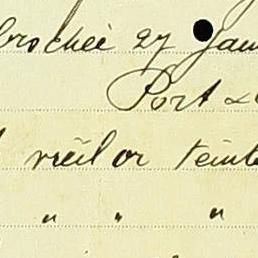 brochée 27 Jan
Port &
vieil or teint
" " "